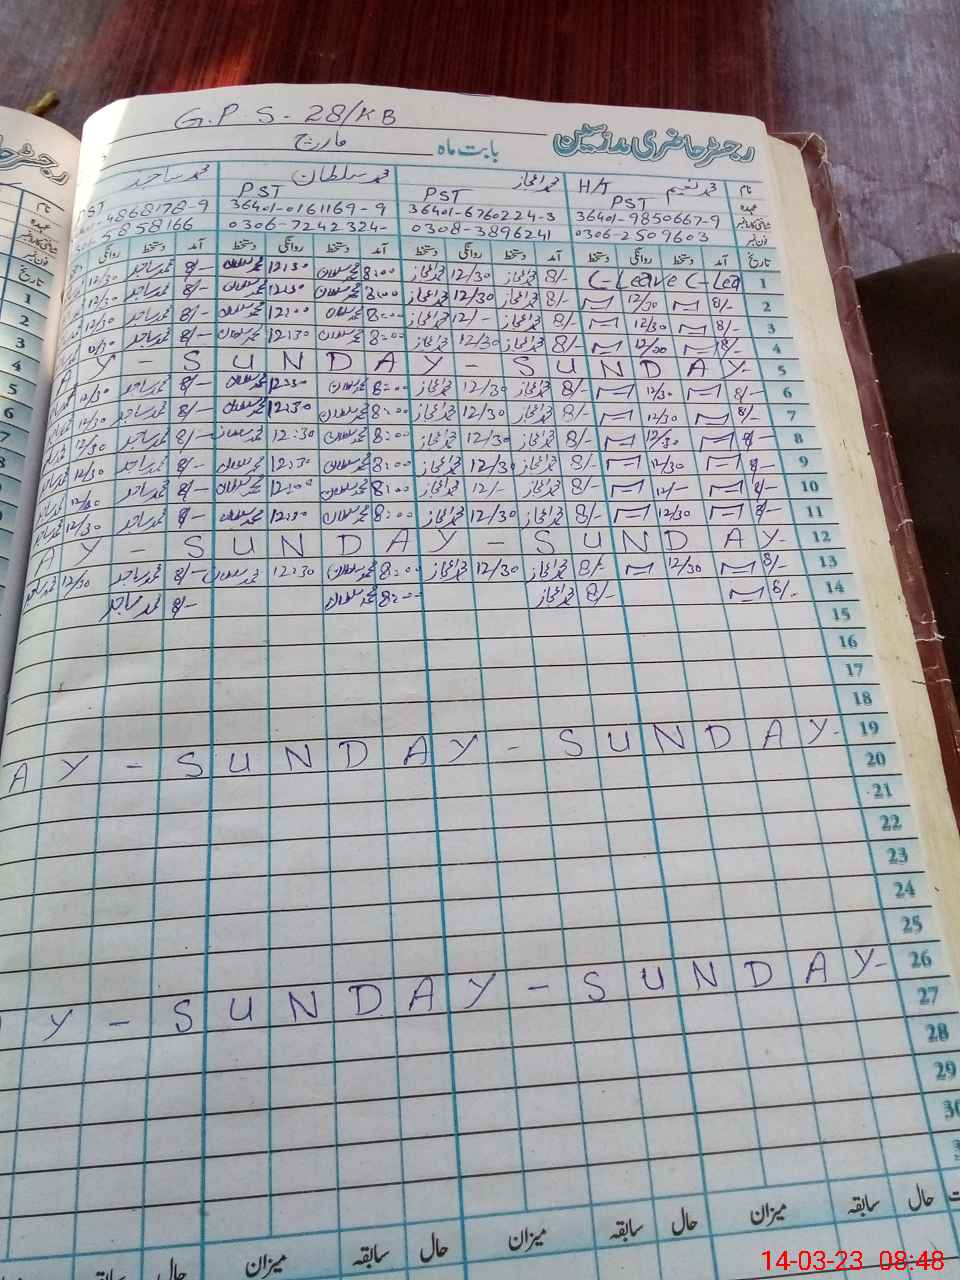 G.P.S - 28/KB
رجسٹر حاضری مدرسین بابت ماہ مارچ
نام محمد نعیم H/T محمد اعجاز محمد سلطان محمد ساجد
عہدہ PST PST PST PST
شناختی کارڈ نمبر 36401-9850667-9 36401-6760224-3 36401-0161169-9 4868178-9
فون نمبر 0306-2509603 0308-3896241 0306-7242324- 5858166
تاریخ آمد دستخط روانگی دستخط آمد دستخط روانگی دستخط آمد دستخط روانگی دستخط آمد دستخط روانگی
1 C-Leave C-Lea 8/- محمد اعجاز 12/30 محمد اعجاز 8:00 محمد سلطان 12:30 محمد سلطان 8/- محمد ساجد 12/30
2 8/- 12/30 8/- محمد اعجاز 12/30 محمد اعجاز 8:00 محمد سلطان 12:30 محمد سلطان 8/- محمد ساجد 12/30
3 8/- 12/30 8/- محمد اعجاز 12/- محمد اعجاز 8:00 محمد سلطان 12:00 محمد سلطان 8/- محمد ساجد
4 8/- 12/30 8/- محمد اعجاز 12/30 محمد اعجاز 8:00 محمد سلطان 12:30 محمد سلطان 8/- محمد ساجد
5 A Y - S U N D A Y - S U N D A Y -
6 8/- 12/30 8/- محمد اعجاز 12/30 محمد اعجاز 8:00 محمد سلطان 12:30 محمد سلطان 8/- محمد ساجد 12/30
7 8/- 12/30 8/- محمد اعجاز 12/30 محمد اعجاز 8:00 محمد سلطان 12:30 محمد سلطان 8/- محمد ساجد 12/30
8 8/- 12/30 8/- محمد اعجاز 12/30 محمد اعجاز 8:00 محمد سلطان 12:30 محمد سلطان 8/- محمد ساجد 12/30
9 8/- 12/30 8/- محمد اعجاز 12/30 محمد اعجاز 8:00 محمد سلطان 12:30 محمد سلطان 8/- محمد ساجد 12/30
10 8/- 12/- 8/- محمد اعجاز 12/- محمد اعجاز 8:00 محمد سلطان 12:00 محمد سلطان 8/- محمد ساجد
11 8/- 12/30 8/- محمد اعجاز 12/30 محمد اعجاز 8:00 محمد سلطان 12:30 محمد سلطان 8/- محمد ساجد 12/30
12 A Y - S U N D A Y - S U N D A Y -
13 8/- 12/30 8/- محمد اعجاز 12/30 محمد اعجاز 8:00 محمد سلطان 12:30 محمد سلطان 8/- محمد ساجد 12/30
14 8/- 8/- محمد اعجاز 8:00 محمد سلطان 8/- محمد ساجد
15
16
17
18
19 A Y - S U N D A Y - S U N D A Y -
20
21
22
23
24
25
26 Y - S U N D A Y - S U N D A Y -
27
28
29
30
حال سابقہ میزان حال سابقہ میزان حال سابقہ میزان حال سابقہ
14-03-23 08:48